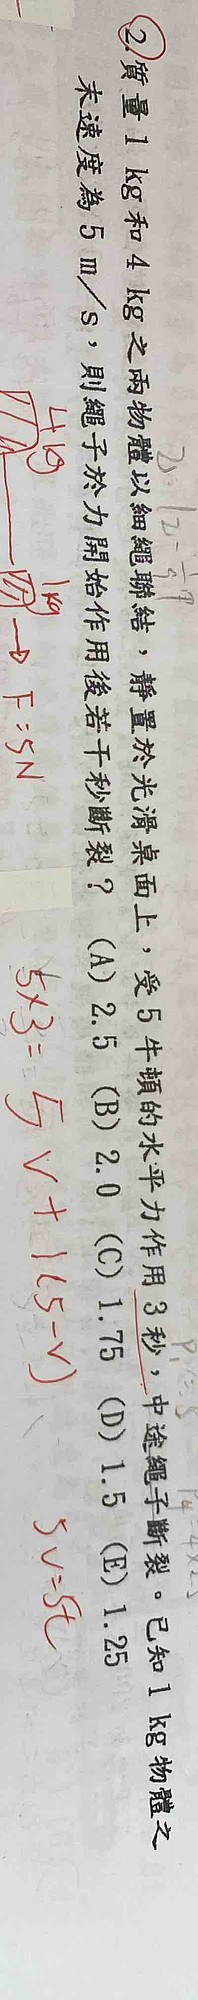 2. 質量 1 kg 和 4 kg 之兩物體以細繩聯結，靜置於光滑桌面上，受 5 牛頓的水平力作用 3 秒，中途繩子斷裂。已知 1 kg 物體之
末速度為 5 m/s，則繩子於力開始作用後若干秒斷裂？ (A) 2.5 (B) 2.0 (C) 1.75 (D) 1.5 (E) 1.25
4kg 1kg → F=5N
5×3=5V+1(5-V)
5V=5t